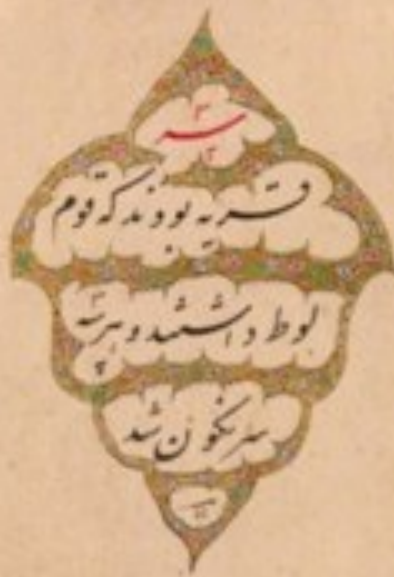 سه
قریه بودند که قوم
لوط داشتند و هر سه
سرنگون شد